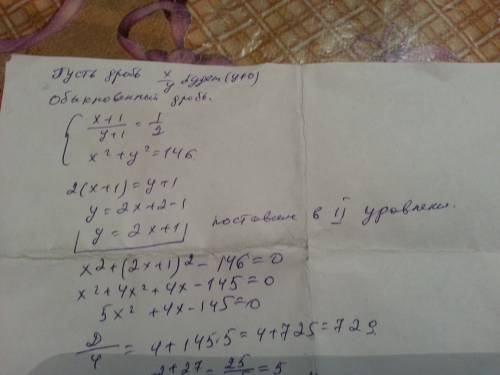 Пусть дробь x/y будет (y≠0)
Обыкновенный дробь.
{ (x+1)/(y+1) = 1/2
x² + y² = 146
2(x+1) = y+1
y = 2x+2-1
y = 2x+1 поставим в II уровнени.
x² + (2x+1)² - 146 = 0
x² + 4x² + 4x - 145 = 0
5x² + 4x - 145 = 0
D/4 = 4 + 145·5 = 4 + 725 = 729
2+27 = 25 = 5